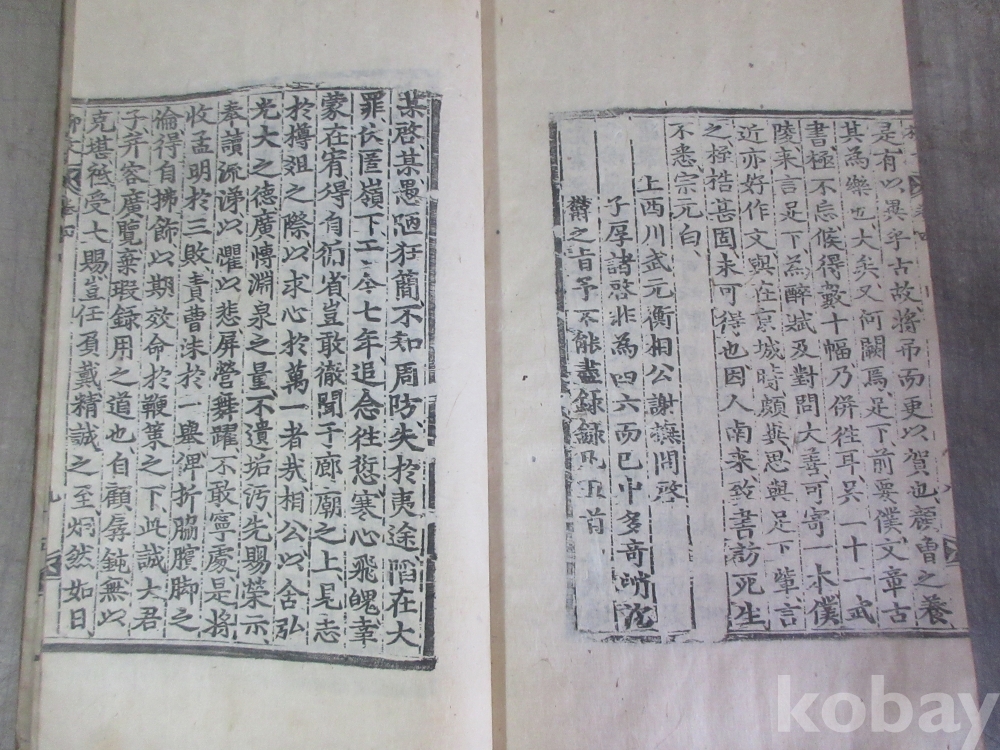 是有以異乎古故將弔而更以賀也顏曾之養
其為樂也大矣又何闕焉足下前要僕文章古
書極不忘候得數十幅乃併徃耳吳二十一武
陵来言足下為醉賦及對問大善可寄一本僕
近亦好作文與在京城時頗異思與足下輩言
之桎梏甚固未可得也因人南来致書訪死生
不悉宗元白
上西川武元衡相公謝撫問啓
子厚諸啓非為四六而已中多奇峭沉
欝之旨予不能盡録録凡五首
八
某啓某愚陋狂簡不知周防失於夷途陷在大
罪伏匿嶺下于今七年追念徃愆寒心飛魄幸
蒙在宥得自循省豈敢徹聞于廊廟之上見志
於樽俎之際以求心於萬一者我相公以含弘
光大之德廣博淵泉之量不遺垢汚先賜榮示
奉讀流涕以懼以悲屏營舞躍不敢寧處是將
收孟明於三敗責曹沬於一舉俾折脇臏脚之
淪得自拂飾以期效命於鞭策之下此誠大君
子并容廣覽棄瑕録用之道也自顧孱鈍無以
克堪祗受大賜豈任負戴精誠之至炯然如日
柳文 卷四
九
kobay